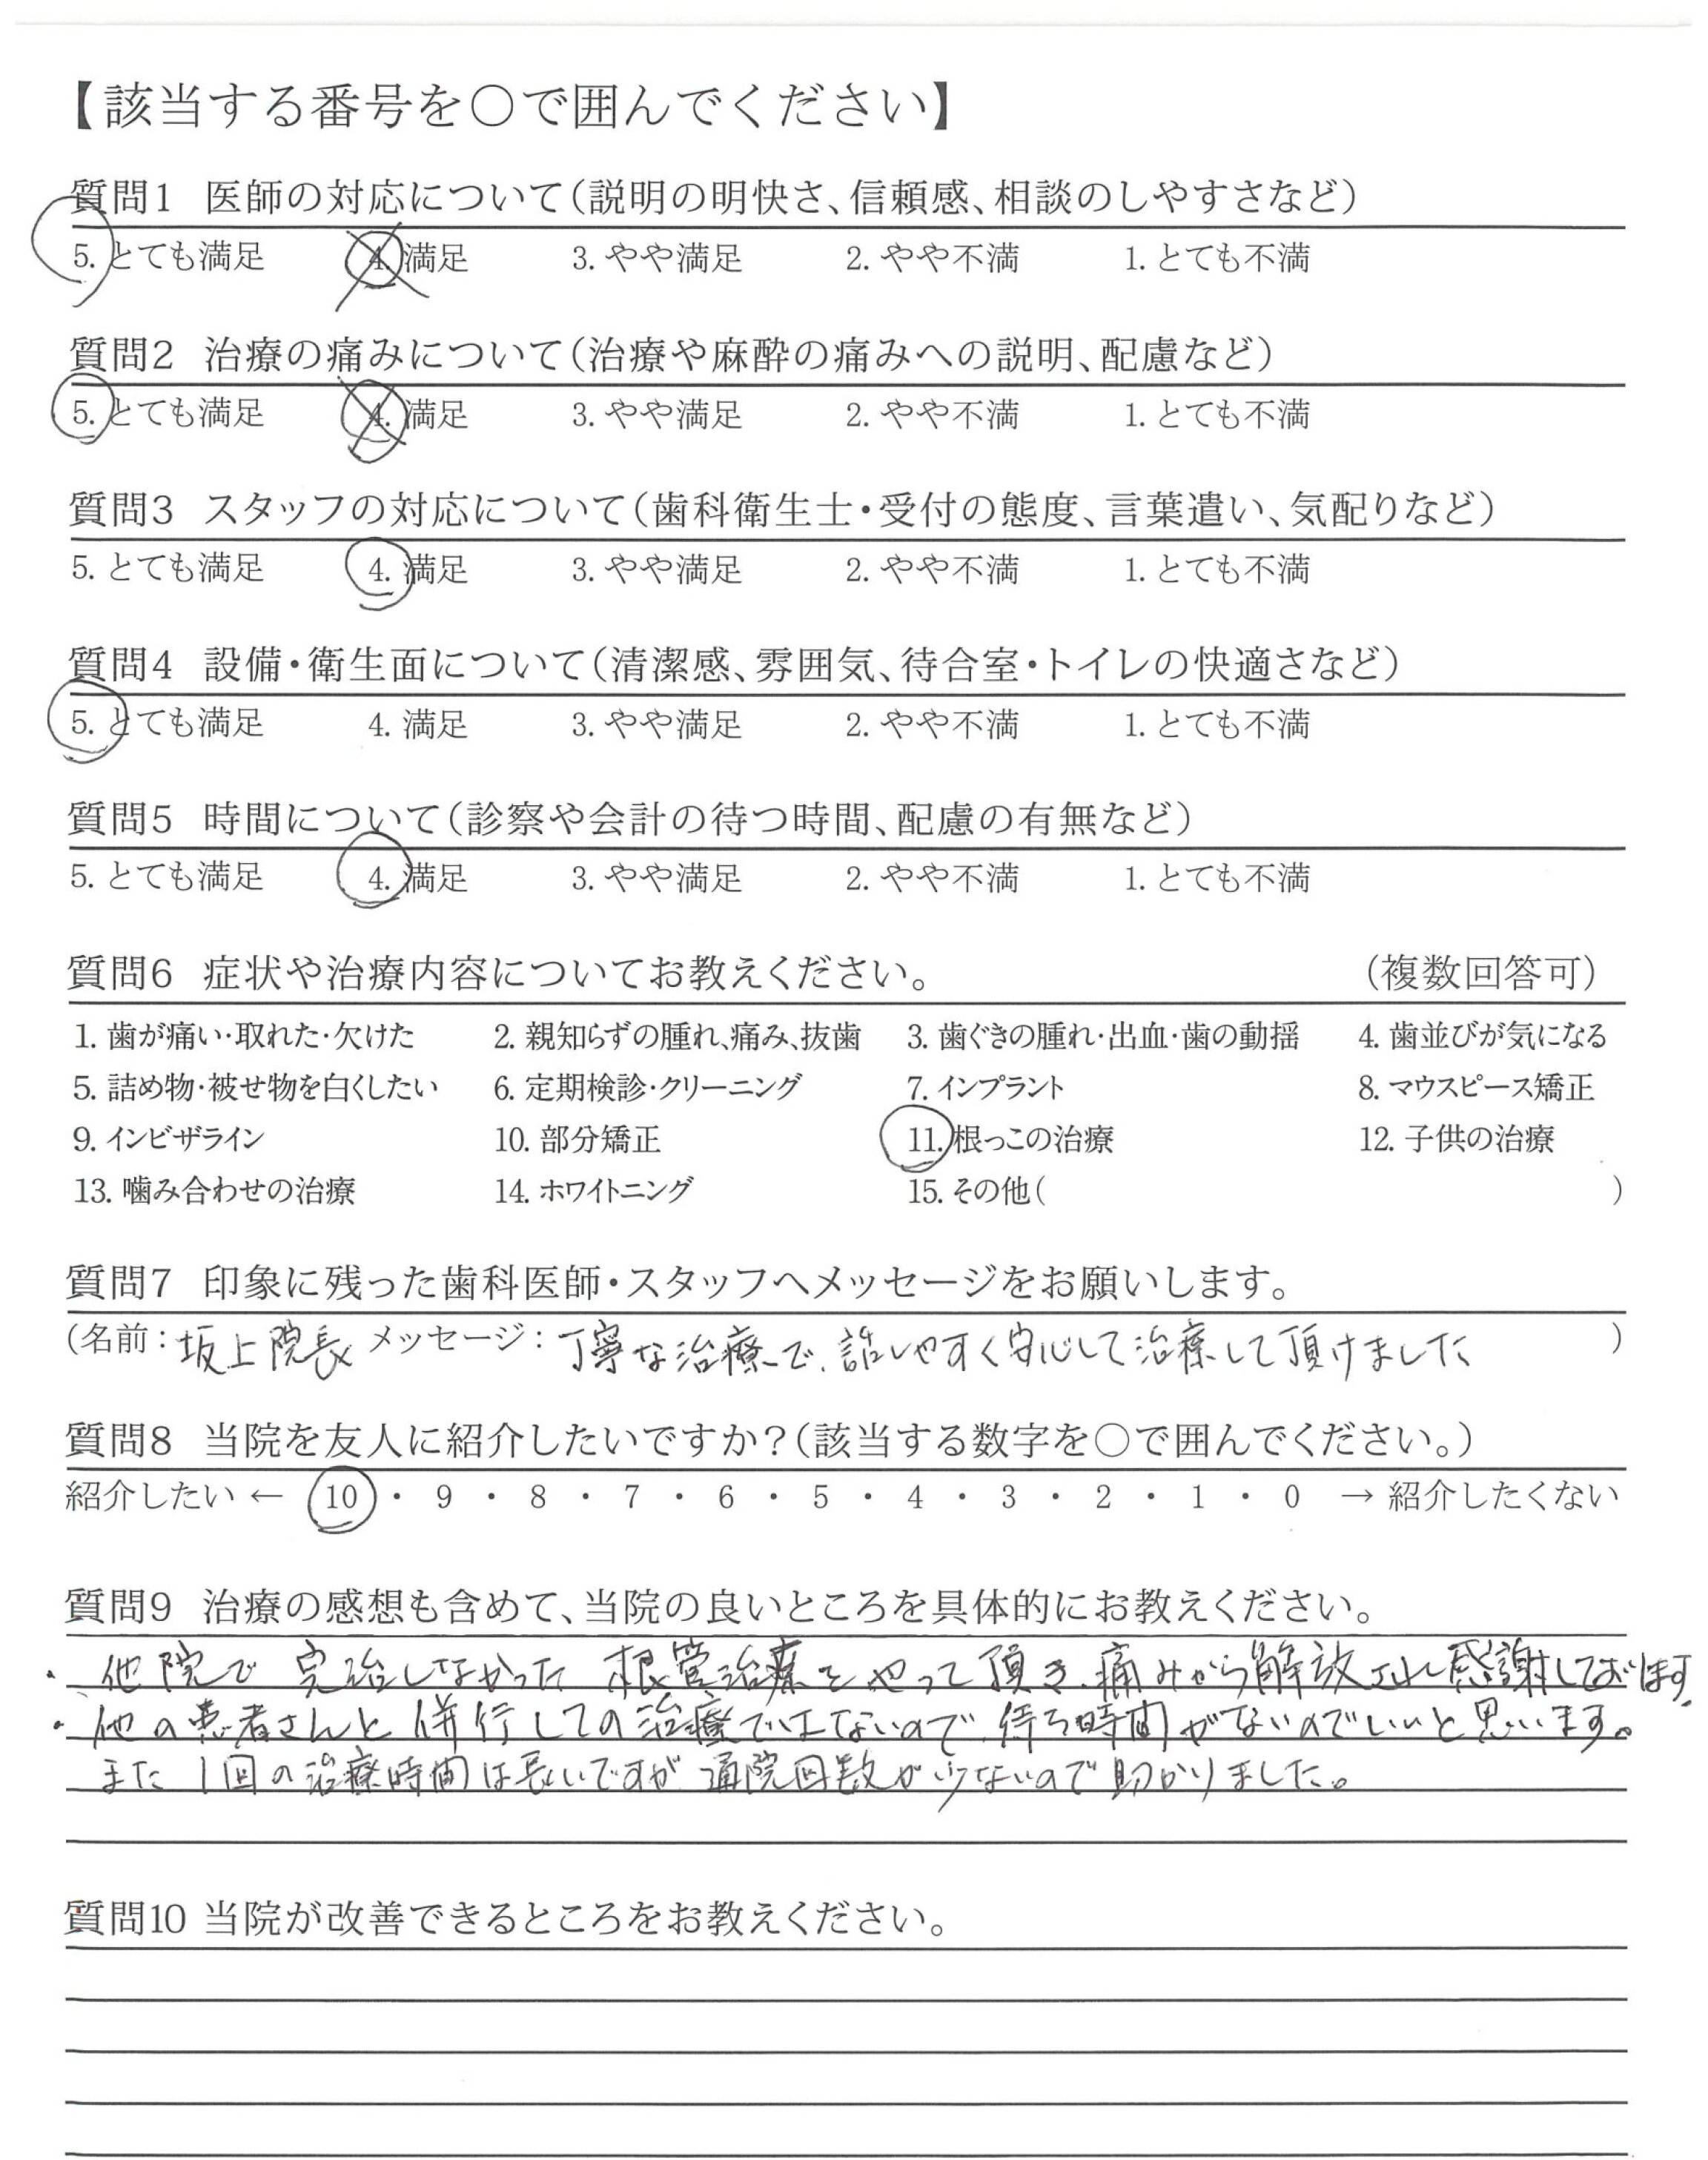 【該当する番号を〇で囲んでください】
質問1 医師の対応について（説明の明快さ、信頼感、相談のしやすさなど）
5. とても満足 4. 満足 3. やや満足 2. やや不満 1. とても不満
質問2 治療の痛みについて（治療や麻酔の痛みへの説明、配慮など）
5. とても満足 4. 満足 3. やや満足 2. やや不満 1. とても不満
質問3 スタッフの対応について（歯科衛生士・受付の態度、言葉遣い、気配りなど）
5. とても満足 4. 満足 3. やや満足 2. やや不満 1. とても不満
質問4 設備・衛生面について（清潔感、雰囲気、待合室・トイレの快適さなど）
5. とても満足 4. 満足 3. やや満足 2. やや不満 1. とても不満
質問5 時間について（診察や会計の待つ時間、配慮の有無など）
5. とても満足 4. 満足 3. やや満足 2. やや不満 1. とても不満
質問6 症状や治療内容についてお教えください。 （複数回答可）
1. 歯が痛い・取れた・欠けた 2. 親知らずの腫れ、痛み、抜歯 3. 歯ぐきの腫れ・出血・歯の動揺 4. 歯並びが気になる
5. 詰め物・被せ物を白くしたい 6. 定期検診・クリーニング 7. インプラント 8. マウスピース矯正
9. インビザライン 10. 部分矯正 11. 根っこの治療 12. 子供の治療
13. 噛み合わせの治療 14. ホワイトニング 15. その他（ ）
質問7 印象に残った歯科医師・スタッフへメッセージをお願いします。
（名前：坂上院長 メッセージ：丁寧な治療で、話しやすく安心して治療して頂けました ）
質問8 当院を友人に紹介したいですか？（該当する数字を〇で囲んでください。）
紹介したい ← 10 ・ 9 ・ 8 ・ 7 ・ 6 ・ 5 ・ 4 ・ 3 ・ 2 ・ 1 ・ 0 → 紹介したくない
質問9 治療の感想も含めて、当院の良いところを具体的にお教えください。
・他院で完治しなかった根管治療をやって頂き、痛みから解放され感謝しております。
・他の患者さんと併行しての治療ではないので、待ち時間がないのでいいと思います。
また1回の治療時間は長いですが、通院回数が少ないので助かりました。
質問10 当院が改善できるところをお教えください。